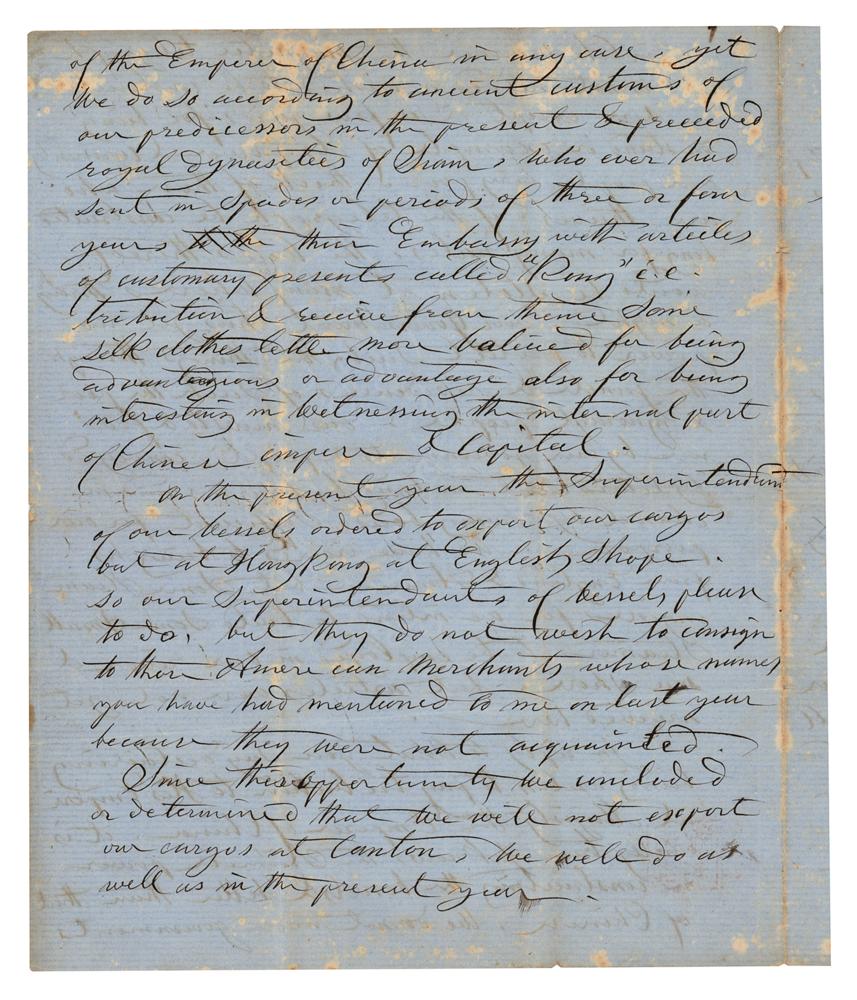 of the Emperer of China in any case, yet
we do so according to ancient customs of
our predicessors in the present & preceeded
royal dynasties of Siam, who ever had
sent in Spades or periods of three or four
years to the thier Embassy with articles
of customary presents called "Kong" i.e.
tribution & receive from theme some
silk clothes little more valiued for being
advantagious or advantage also for being
interesting in wetnessing the internal part
of Chinese empire & Capital.
On the present year the Superintendant
of our vessels ordered to export our cargos
but at Hong Kong at English Shope.
so our Superintendants of vessels please
to do, but they do not wish to consign
to those American Merchants whose names
you have had mentioned to me on last year
because they were not acquainted.
Since this opportunity we concluded
or determined that we will not export
our cargos at Canton, we will do as
well as in the present year.